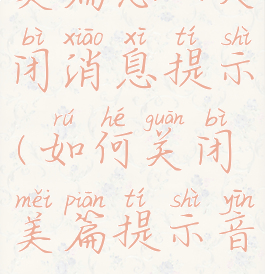 bì xiāo xī tí shì
闭消息提示
rú hé guān bì
(如何关闭
měi piān tí shì yīn
美篇提示音